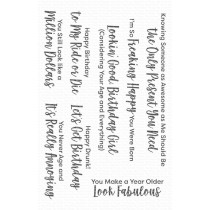 Knowing Someone as Awesome as Me Should Be
the Only Present You Need
I'm So Freaking Happy You Were Born
Lookin' Good Birthday Girl
(Considering Your Age and Everything)
Happy Birthday
to My Ride or Die
Happy Drunk!
Let's Get Birthday
You Still Look like a
Million Dollars
You Never Age and
It's Really Annoying
You Make a Year Older
Look Fabulous